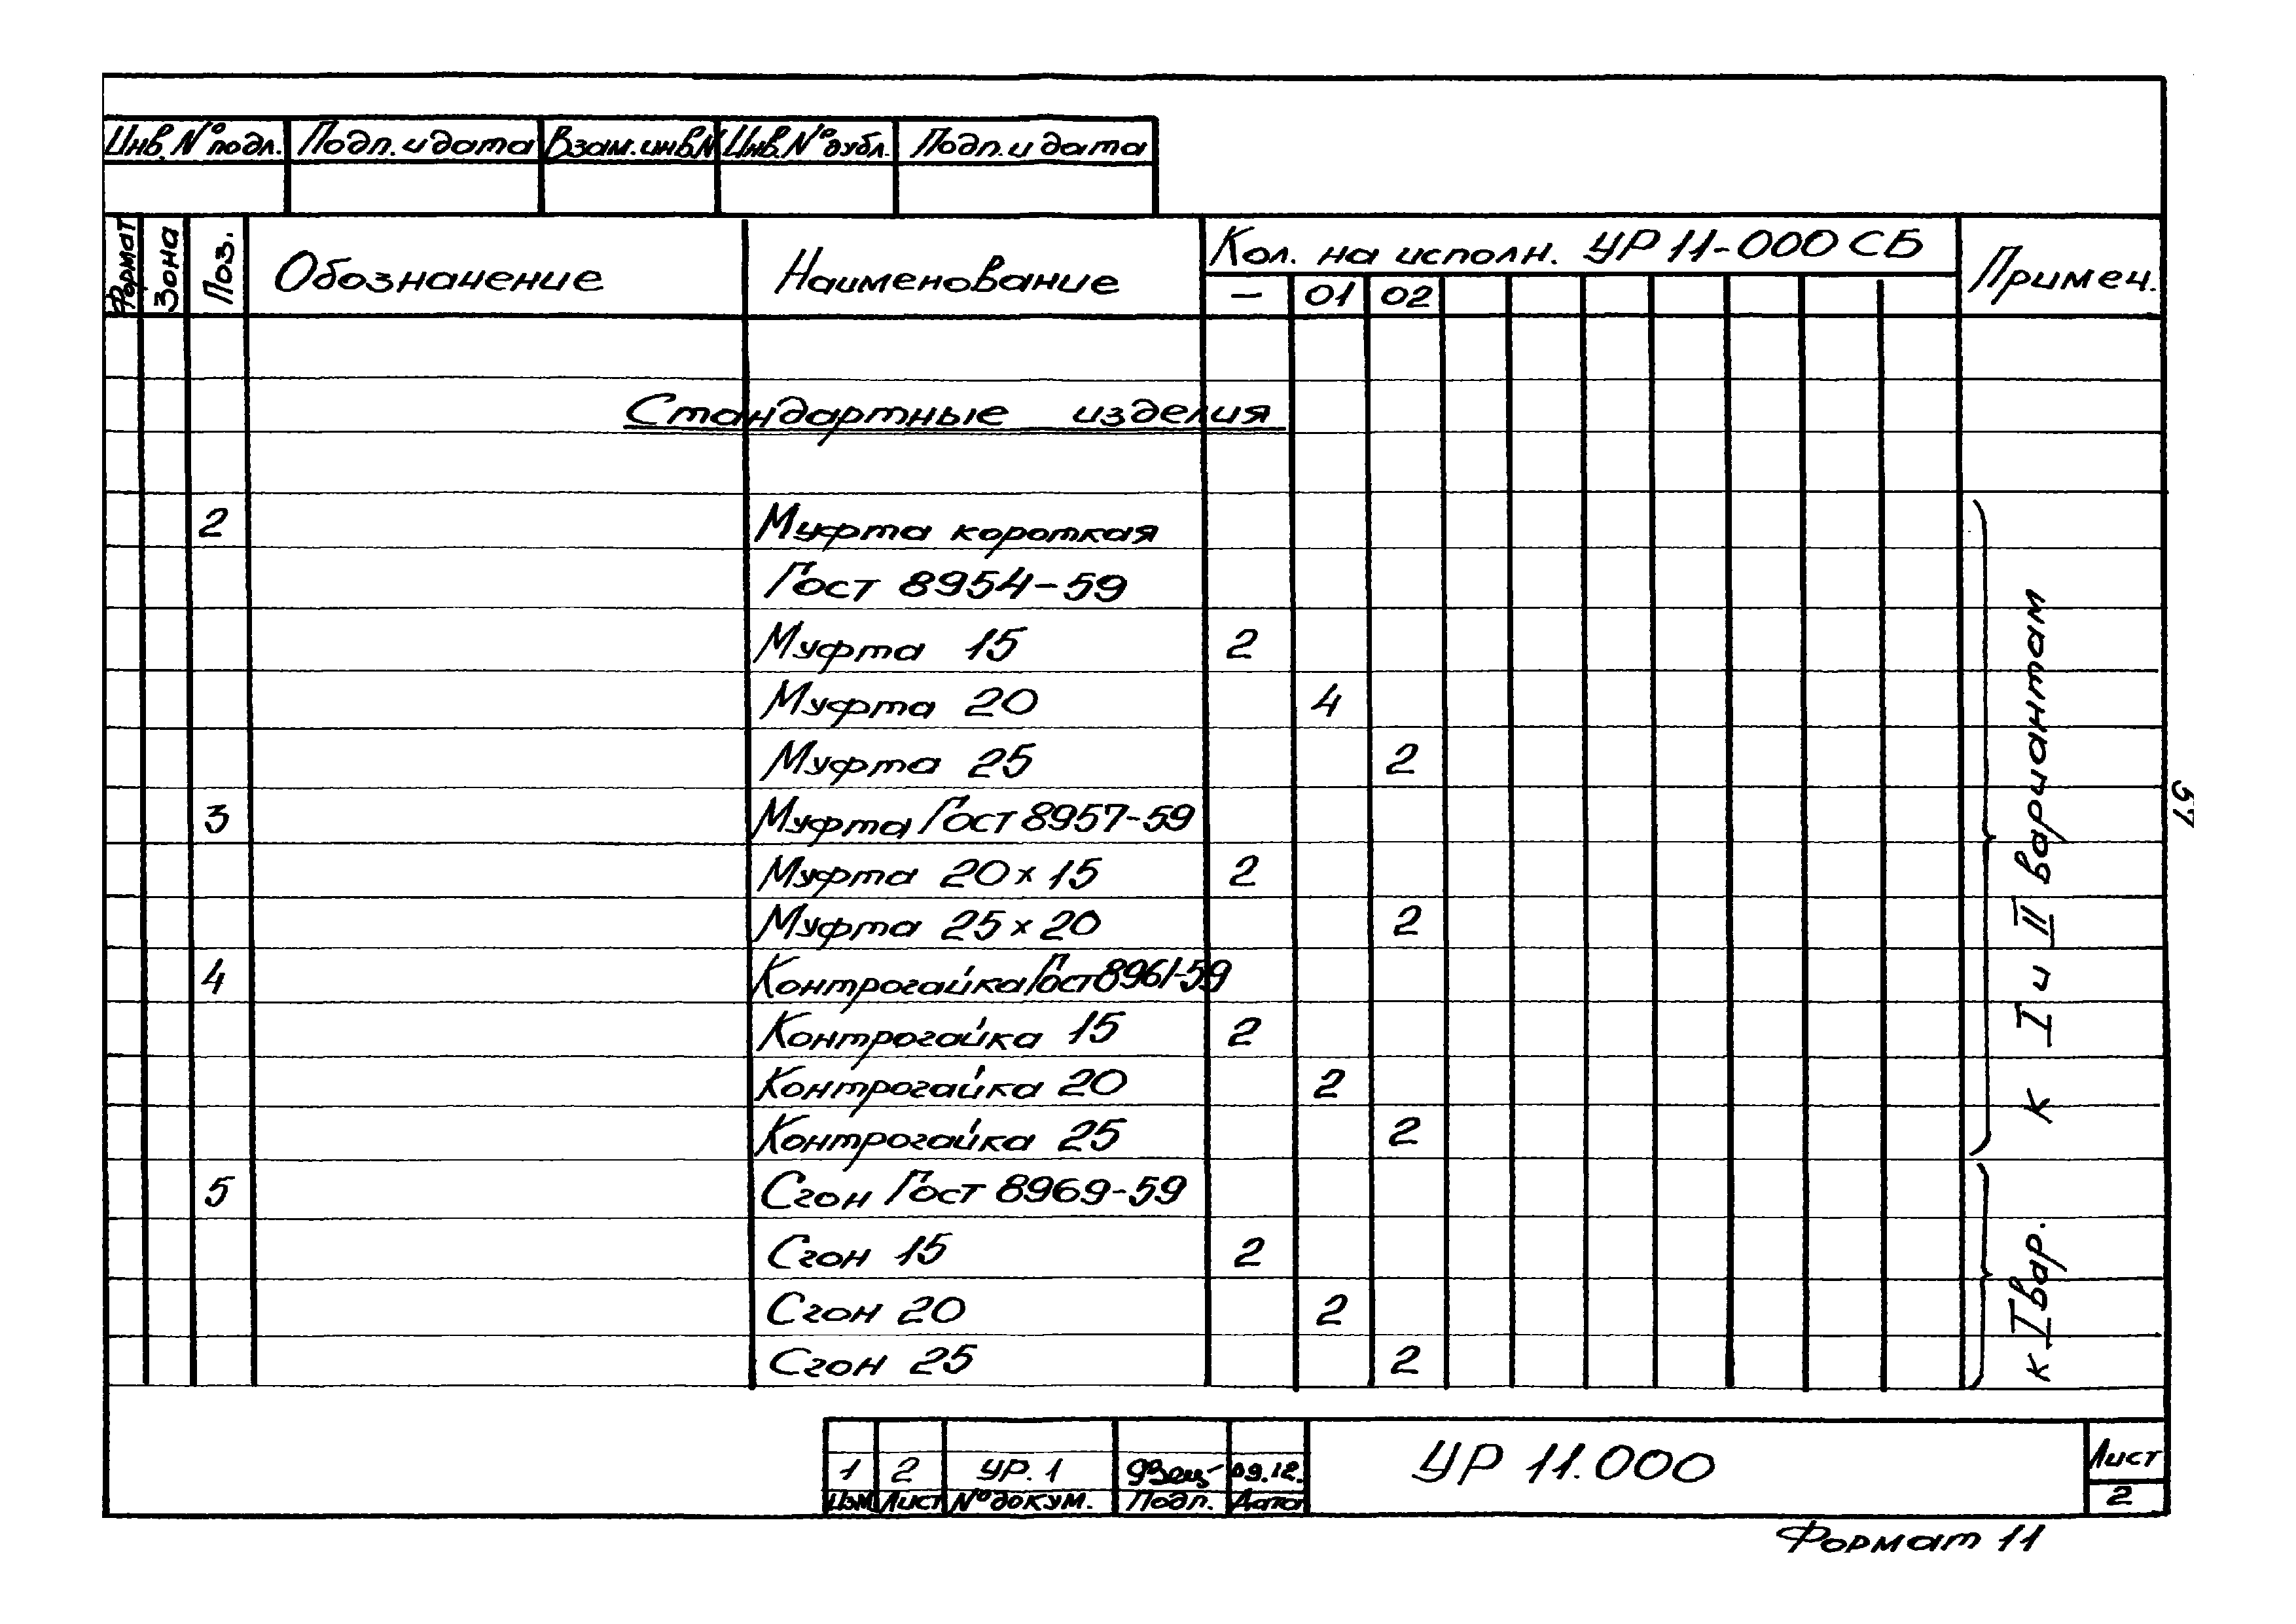 Инв. № подл. Подп. и дата Взам. инв. № Инв. № дубл. Подп. и дата
Формат Зона Поз. Обозначение Наименование Кол. на исполн. УР 11-000 СБ Примеч.
— 01 02
Стандартные изделия
2 Муфта короткая
Гост 8954-59
Муфта 15 2
Муфта 20 4
Муфта 25 2
3 Муфта Гост 8957-59
Муфта 20 х 15 2
Муфта 25 х 20 2
4 Контрогайка Гост 8961-59
Контрогайка 15 2
Контрогайка 20 2
Контрогайка 25 2
к I и II вариантам
5 Сгон Гост 8969-59
Сгон 15 2
Сгон 20 2
Сгон 25 2
к I вар.
57
1 2 УР. 1 09.12.
Изм Лист № докум. Подп. Дата
УР 11.000
Лист
2
Формат 11